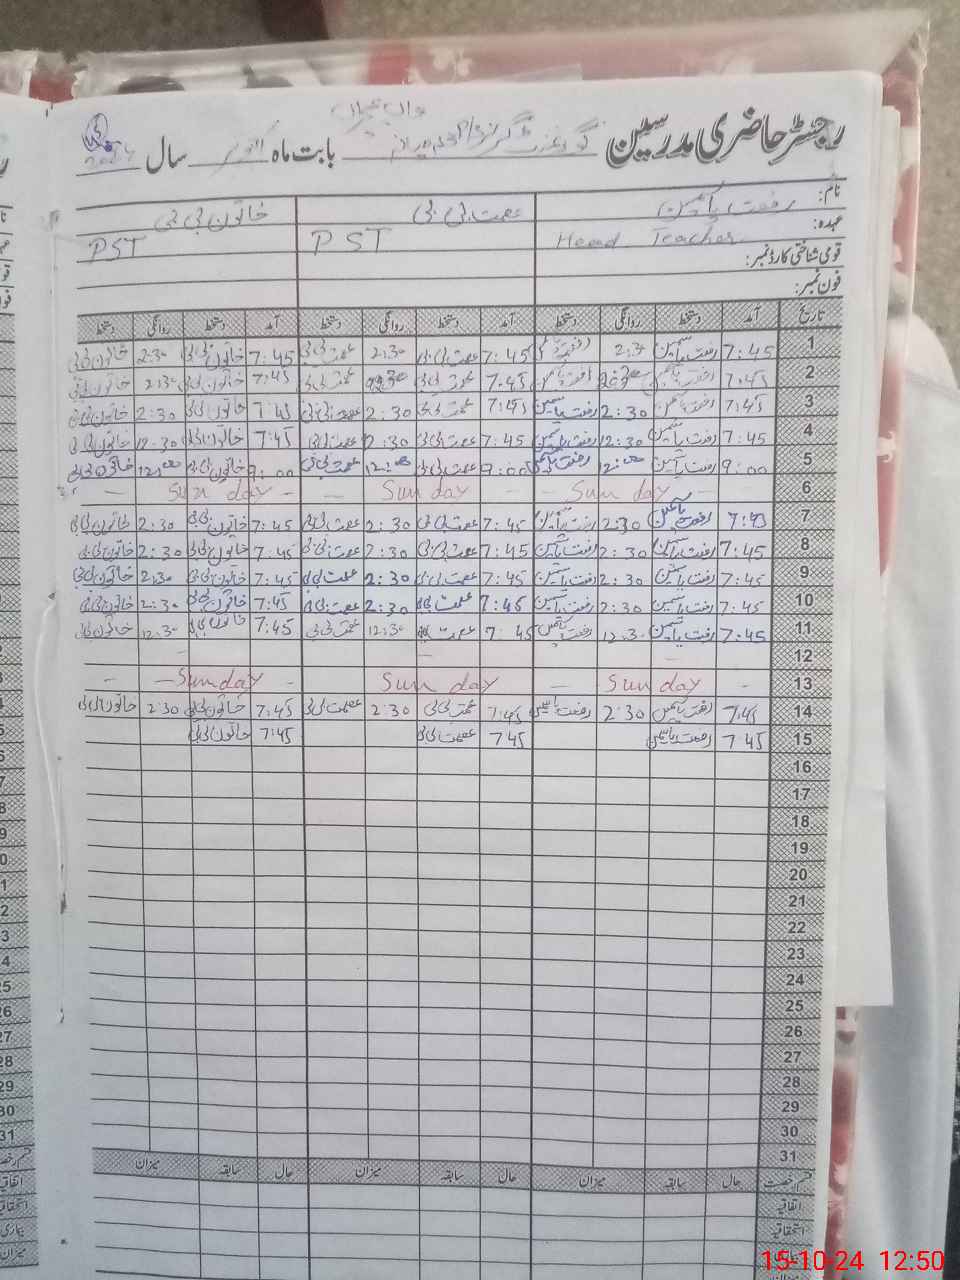 رجسٹر حاضری مدرسین گورنمنٹ گرلز بابت ماہ اکتوبر سال 2024
نام: رفعت یاسمین عصمت بی بی خاتون بی بی
عہدہ: Head Teacher PST PST
قومی شناختی کارڈ نمبر:
فون نمبر:
تاریخ آمد دستخط روانگی دستخط آمد دستخط روانگی دستخط آمد دستخط روانگی دستخط
1 7:45 رفعت یاسمین 2:30 رفعت یاسمین 7:45 عصمت بی بی 2:30 عصمت بی بی 7:45 خاتون بی بی 2:30 خاتون بی بی
2 7:45 رفعت یاسمین رفعت یاسمین 7:45 عصمت بی بی عصمت بی بی 7:45 خاتون بی بی 2:30 خاتون بی بی
3 7:45 رفعت یاسمین 2:30 رفعت یاسمین 7:45 عصمت بی بی 2:30 عصمت بی بی 7:45 خاتون بی بی 2:30 خاتون بی بی
4 7:45 رفعت یاسمین 12:30 رفعت یاسمین 7:45 عصمت بی بی 2:30 عصمت بی بی 7:45 خاتون بی بی 12:30 خاتون بی بی
5 9:00 رفعت یاسمین 12:00 رفعت یاسمین 9:00 عصمت بی بی 12:00 عصمت بی بی 9:00 خاتون بی بی 12:00 خاتون بی بی
6 - Sunday - - Sunday - - Sunday -
7 7:45 رفعت یاسمین 2:30 رفعت یاسمین 7:45 عصمت بی بی 2:30 عصمت بی بی 7:45 خاتون بی بی 2:30 خاتون بی بی
8 7:45 رفعت یاسمین 2:30 رفعت یاسمین 7:45 عصمت بی بی 2:30 عصمت بی بی 7:45 خاتون بی بی 2:30 خاتون بی بی
9 7:45 رفعت یاسمین 2:30 رفعت یاسمین 7:45 عصمت بی بی 2:30 عصمت بی بی 7:45 خاتون بی بی 2:30 خاتون بی بی
10 7:45 رفعت یاسمین 2:30 رفعت یاسمین 7:45 عصمت بی بی 2:30 عصمت بی بی 7:45 خاتون بی بی 2:30 خاتون بی بی
11 7:45 رفعت یاسمین 12:30 رفعت یاسمین 7:45 عصمت بی بی 12:30 عصمت بی بی 7:45 خاتون بی بی 12:30 خاتون بی بی
12 - - -
13 - Sunday - Sunday - Sunday - -
14 7:45 رفعت یاسمین 2:30 رفعت یاسمین 7:45 عصمت بی بی 2:30 عصمت بی بی 7:45 خاتون بی بی 2:30 خاتون بی بی
15 7:45 رفعت یاسمین 7 45 عصمت بی بی 7:45 خاتون بی بی
16
17
18
19
20
21
22
23
24
25
26
27
28
29
30
31
قسم رخصت حال سابقہ میزان حال سابقہ میزان حال سابقہ میزان
اتفاقیہ
استحقاقیہ
15-10-24 12:50